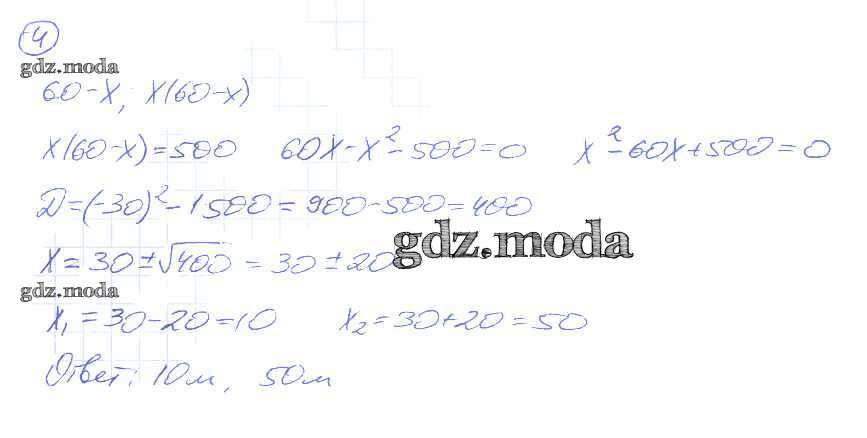 4
gdz.moda
60-x; x(60-x)
x(60-x)=500 60x-x²-500=0 x²-60x+500=0
D=(-30)²-1 500=900-500=400
gdz.moda
x=30±√400=30±20
gdz.moda
x₁=30-20=10 x₂=30+20=50
Ответ: 10м, 50м